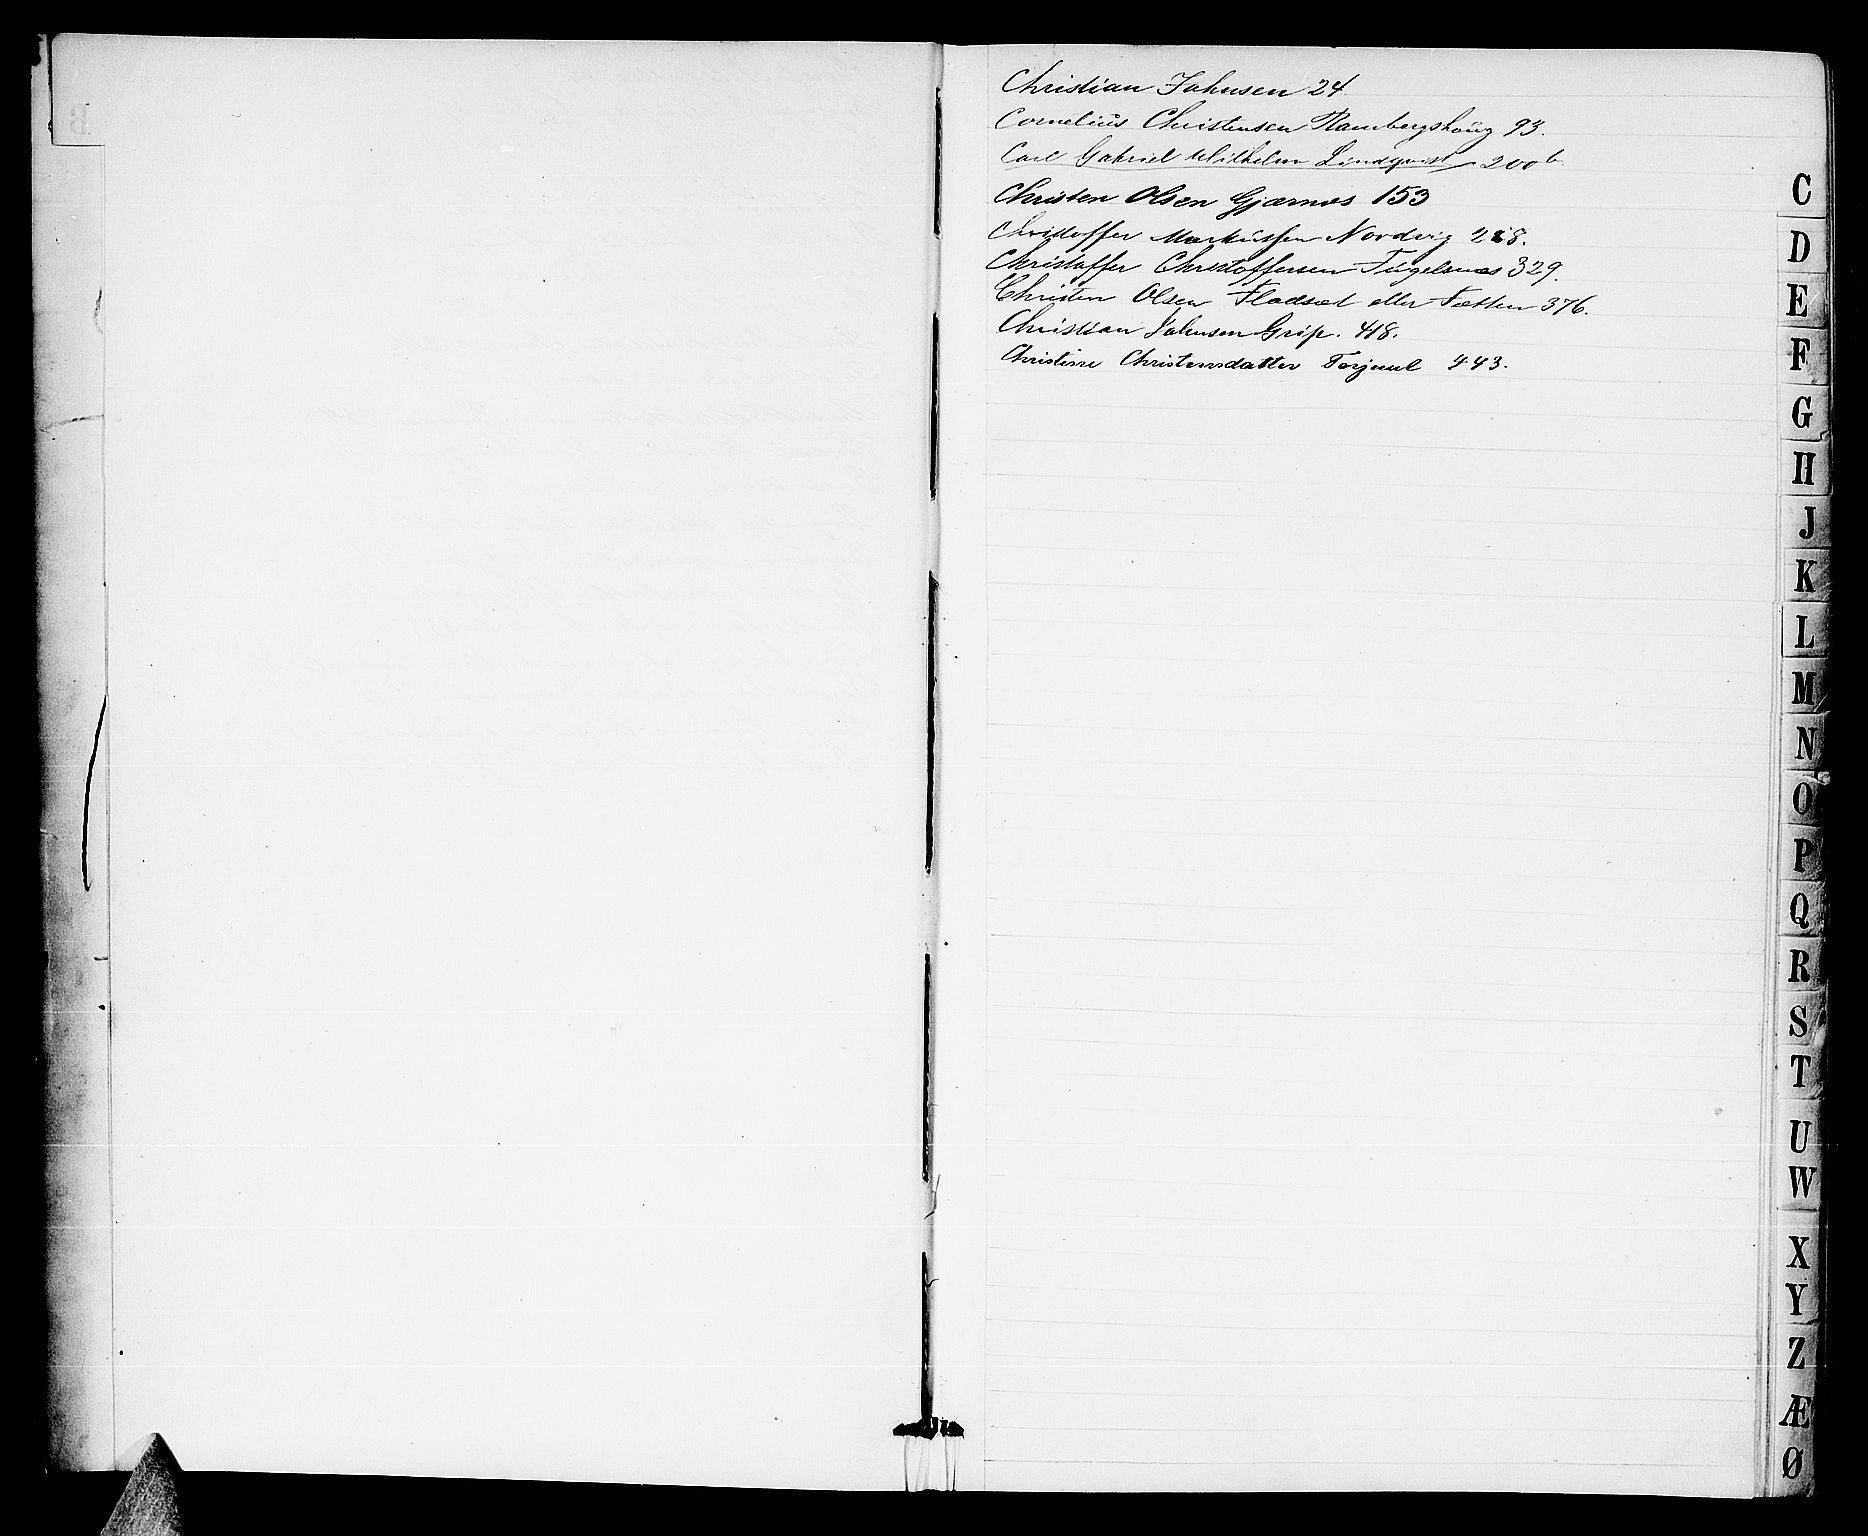 Christian Johnsen 24
Cornelius Christensen Rambergshoug 93.
Carl Gabriel Wilhelm Lindqvist 200 b
Christen Olsen Gjærnes 153
Christoffer Markussen Nordvig 218.
Christoffer Christoffersen Fugelsnes 329.
Christen Olsen Flodsæt eller Sætten 376.
Christian Johnsen Grip. 418.
Christine Christensdatter 443.
B
C
D
E
F
G
H
J
K
L
M
N
O
P
Q
R
S
T
U
W
X
Y
Z
Æ
Ø